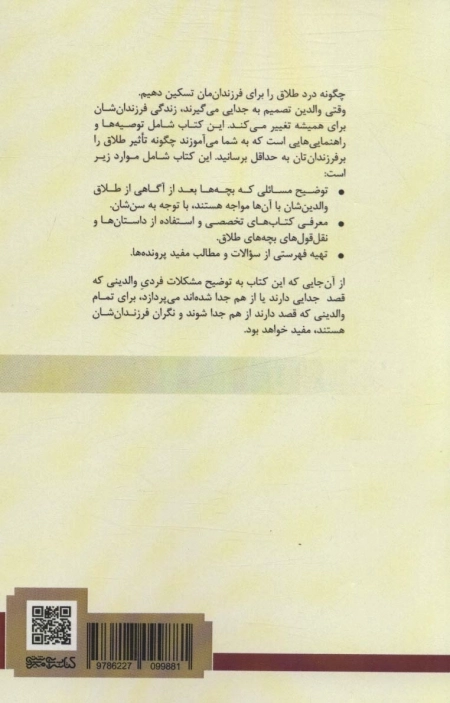 چگونه درد طلاق را برای فرزندان‌مان تسکین دهیم.
وقتی والدین تصمیم به جدایی می‌گیرند، زندگی فرزندان‌شان
برای همیشه تغییر می‌کند. این کتاب شامل توصیه‌ها و
راهنمایی‌هایی است که به شما می‌آموزند چگونه تأثیر طلاق را
برفرزندان‌تان به حداقل برسانید. این کتاب شامل موارد زیر
است:
• توضیح مسائلی که بچه‌ها بعد از آگاهی از طلاق
والدین‌شان با آن‌ها مواجه هستند، با توجه به سن‌شان.
• معرفی کتاب‌های تخصصی و استفاده از داستان‌ها و
نقل‌قول‌های بچه‌های طلاق.
• تهیه فهرستی از سؤالات و مطالب مفید پرونده‌ها.
از آن‌جایی که این کتاب به توضیح مشکلات فردیِ والدینی که
قصد جدایی دارند یا از هم جدا شده‌اند می‌پردازد، برای تمام
والدینی که قصد دارند از هم جدا شوند و نگران فرزندان‌شان
هستند، مفید خواهد بود.
9786227 099881